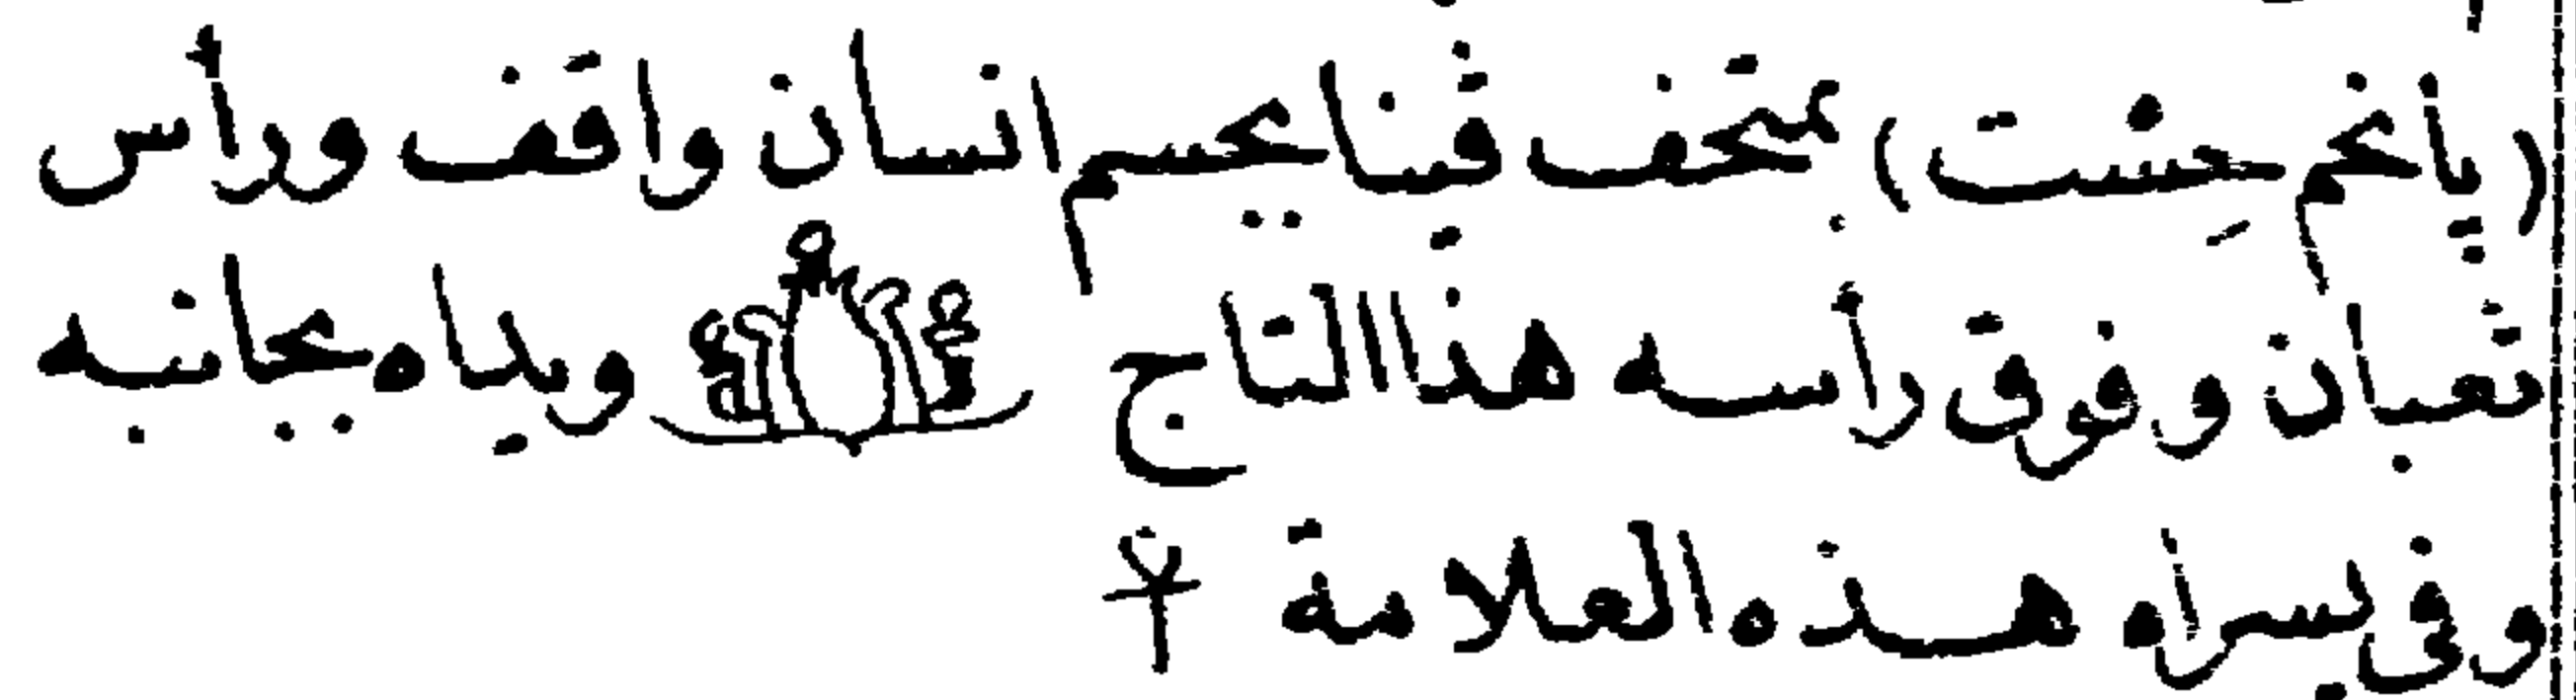 (پأنخم حِسْت) بمتحف ڤينا يجسم انسان واقف ورأس
ثعبان وفوق رأسه هذا التاج ويداه بجانبه
وفى يسراه هذه العلامة ☥